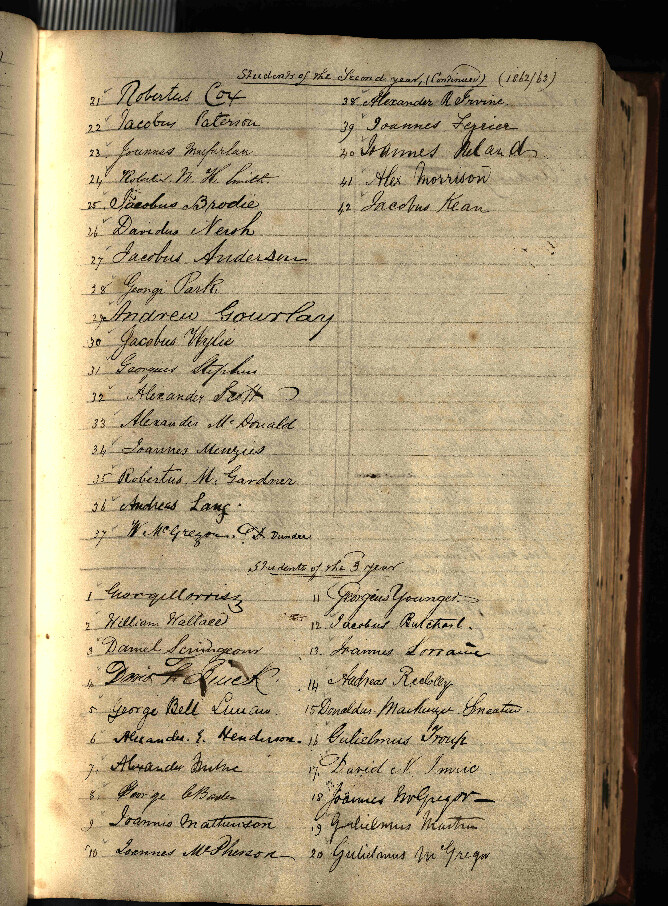 Students of the Second year, (Continued) (1862/63)
21 Robertus Cox
22 Jacobus Paterson
23 Joannes Macfarlan
24 Robertus M. W. Smith.
25 Jacobus Brodie
26 Davidus Nersh
27 Jacobus Anderson
28 George Park.
29 Andrew Gourlay
30 Jacobus Wylie
31 Georgius Stephen
32 Alexander Scott
33 Alexander McDonald
34 Joannes Menzies
35 Robertus M. Gardner
36 Andreas Lang.
37 W. McGregor. Dundee
38 Alexander R Irvine.
39 Joannes Ferrier
40 Joannes
41 Alex Morrison
42 Jacobus Kean
Students of the 3 year
1 George Morris
2 William Wallace
3 Daniel Scrimgeour
4 David
5 George Bell
6 Alexander. E. Henderson.
7 Alexander Milne
8 George
9 Joannes Mathewson
10 Joannes McPherson
11 Georgeus Younger
12 Jacobus Butchart.
13 Joannes Lorraine
14 Andreas
15 Donaldus Mackenzie
16 Gulielmus Troup
17 David N. Imrie
18 Joannes McGregor
19 Gulielmus Martin
20 Gulielmus McGregor